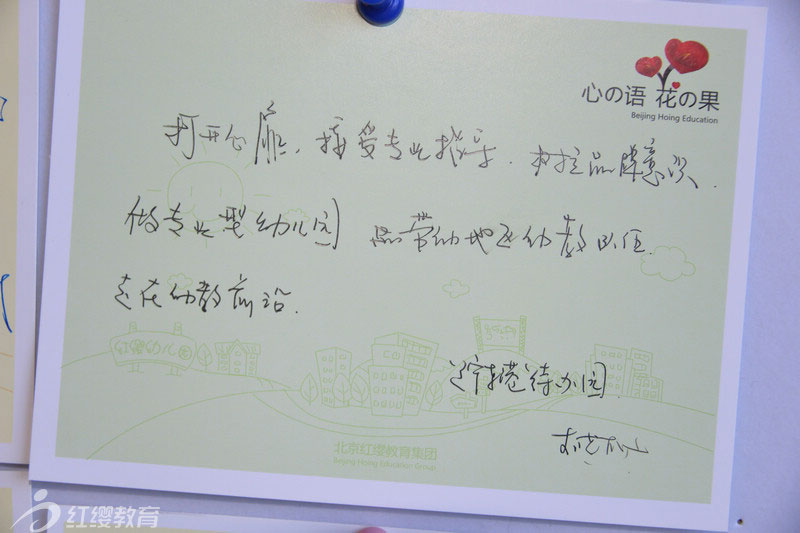 心の语 花の果
Beijing Hoing Education
打开心扉，接受专业指导．树立品牌意识．
做专业型幼儿园 带动地区幼教队伍
走在幼教前沿．
红缨幼儿园
待办园
北京红缨教育集团
Beijing Hoing Education Group
红缨教育